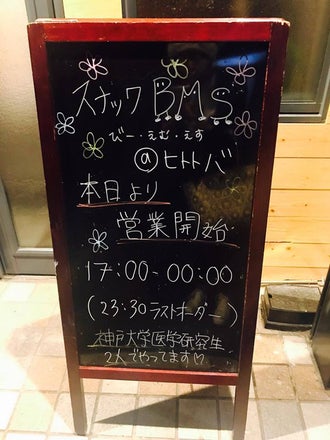 スナックBMS
びー・えむ・えす
@ヒトトバ
本日より
営業開始
17:00-00:00
(23:30ラストオーダー)
神戸大学医学研究生
2人でやってます♡